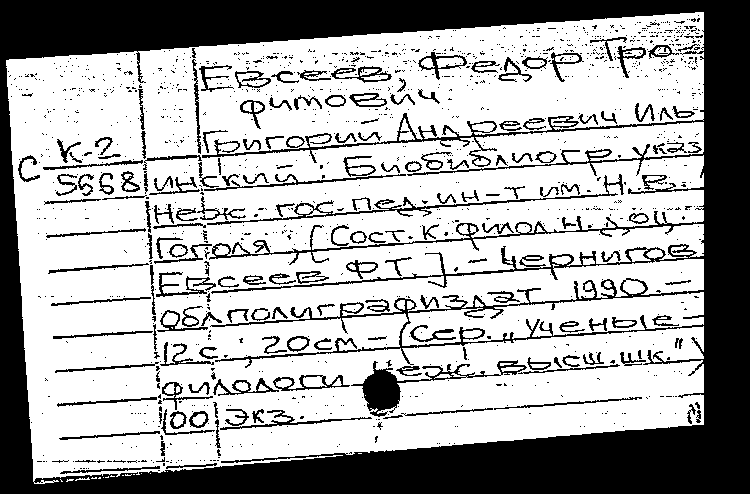 Евсеев, Федор Тро-
фимович
Григорий Андреевич Иль-
С К-2
5668 инский : Библиогр. указ. /
Неж. гос. пед. ин-т им. Н. В.
Гоголя ; [Сост. к. филол. н. доц.
Евсеев Ф.Т.]. – Чернигов:
Облполиграфиздат, 1990. –
12 с. ; 20 см – (Сер. „Ученые –
филологи Неж. высш. шк.")
100 экз.